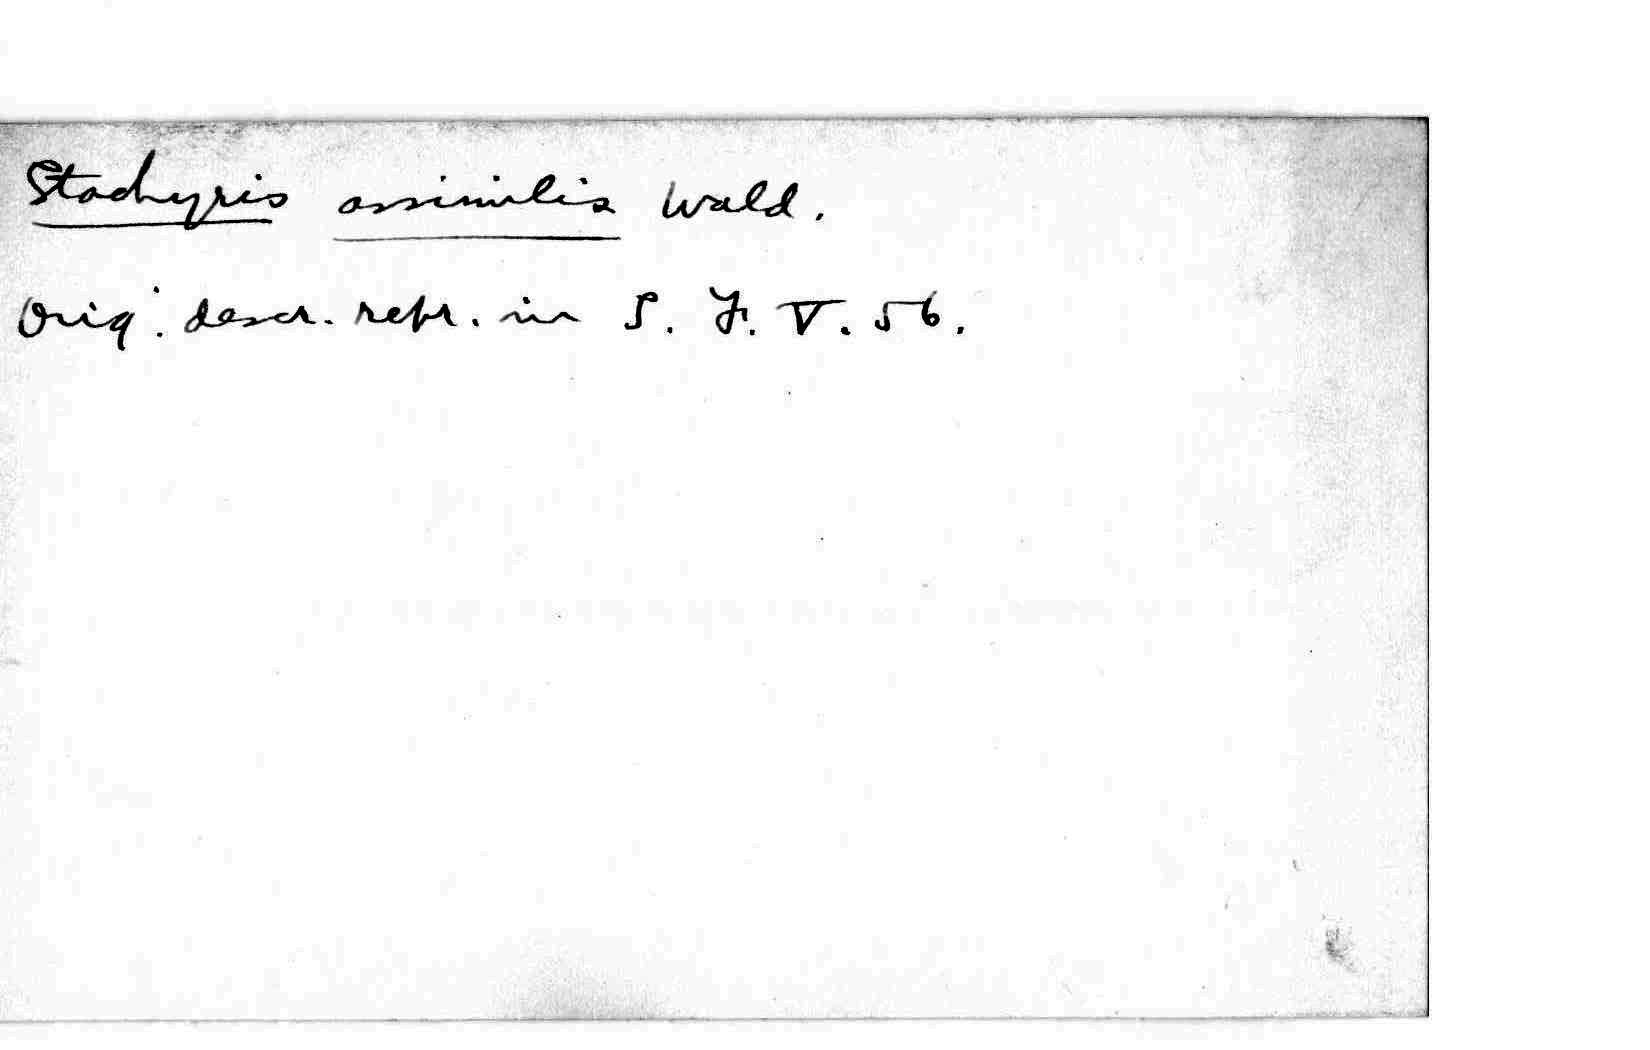 Stachyris assimilis Wald.
Orig. descr. repr. in S. F. V. 56.